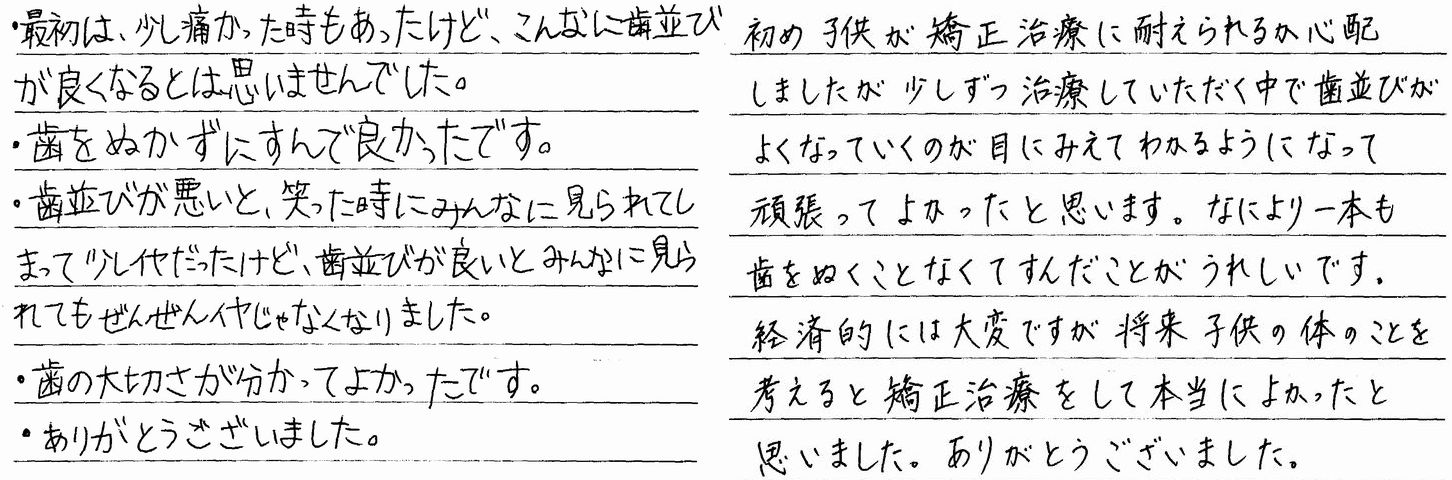 ・最初は、少し痛かった時もあったけど、こんなに歯並び
が良くなるとは思いませんでした。
・歯をぬかずにすんで良かったです。
・歯並びが悪いと、笑った時にみんなに見られてし
まって少しイヤだったけど、歯並びが良いとみんなに見ら
れてもぜんぜんイヤじゃなくなりました。
・歯の大切さが分かってよかったです。
・ありがとうございました。
初め 子供が 矯正治療に耐えられるか心配
しましたが 少しずつ 治療していただく中で歯並びが
よくなっていくのが目にみえてわかるようになって
頑張ってよかったと思います。なにより一本も
歯をぬくことなくてすんだことがうれしいです。
経済的には大変ですが 将来 子供の体のことを
考えると 矯正治療をして本当によかったと
思いました。ありがとうございました。